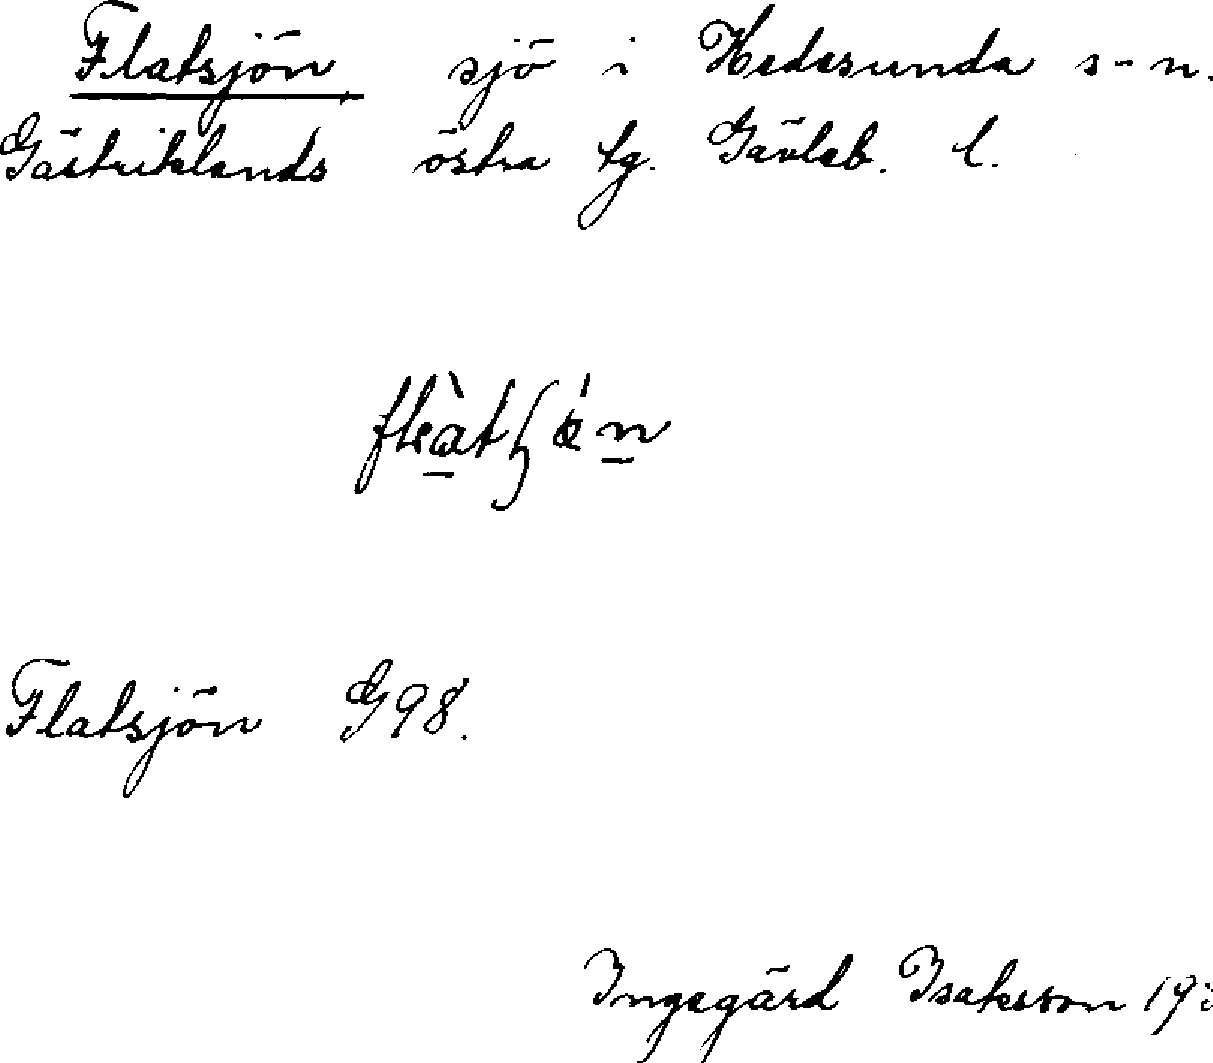 Flatsjön sjö i Hedesunda s-n.
Gästriklands östra tg. Gävleb. l.
Flatsjön G98.
Ingegärd Isaksson